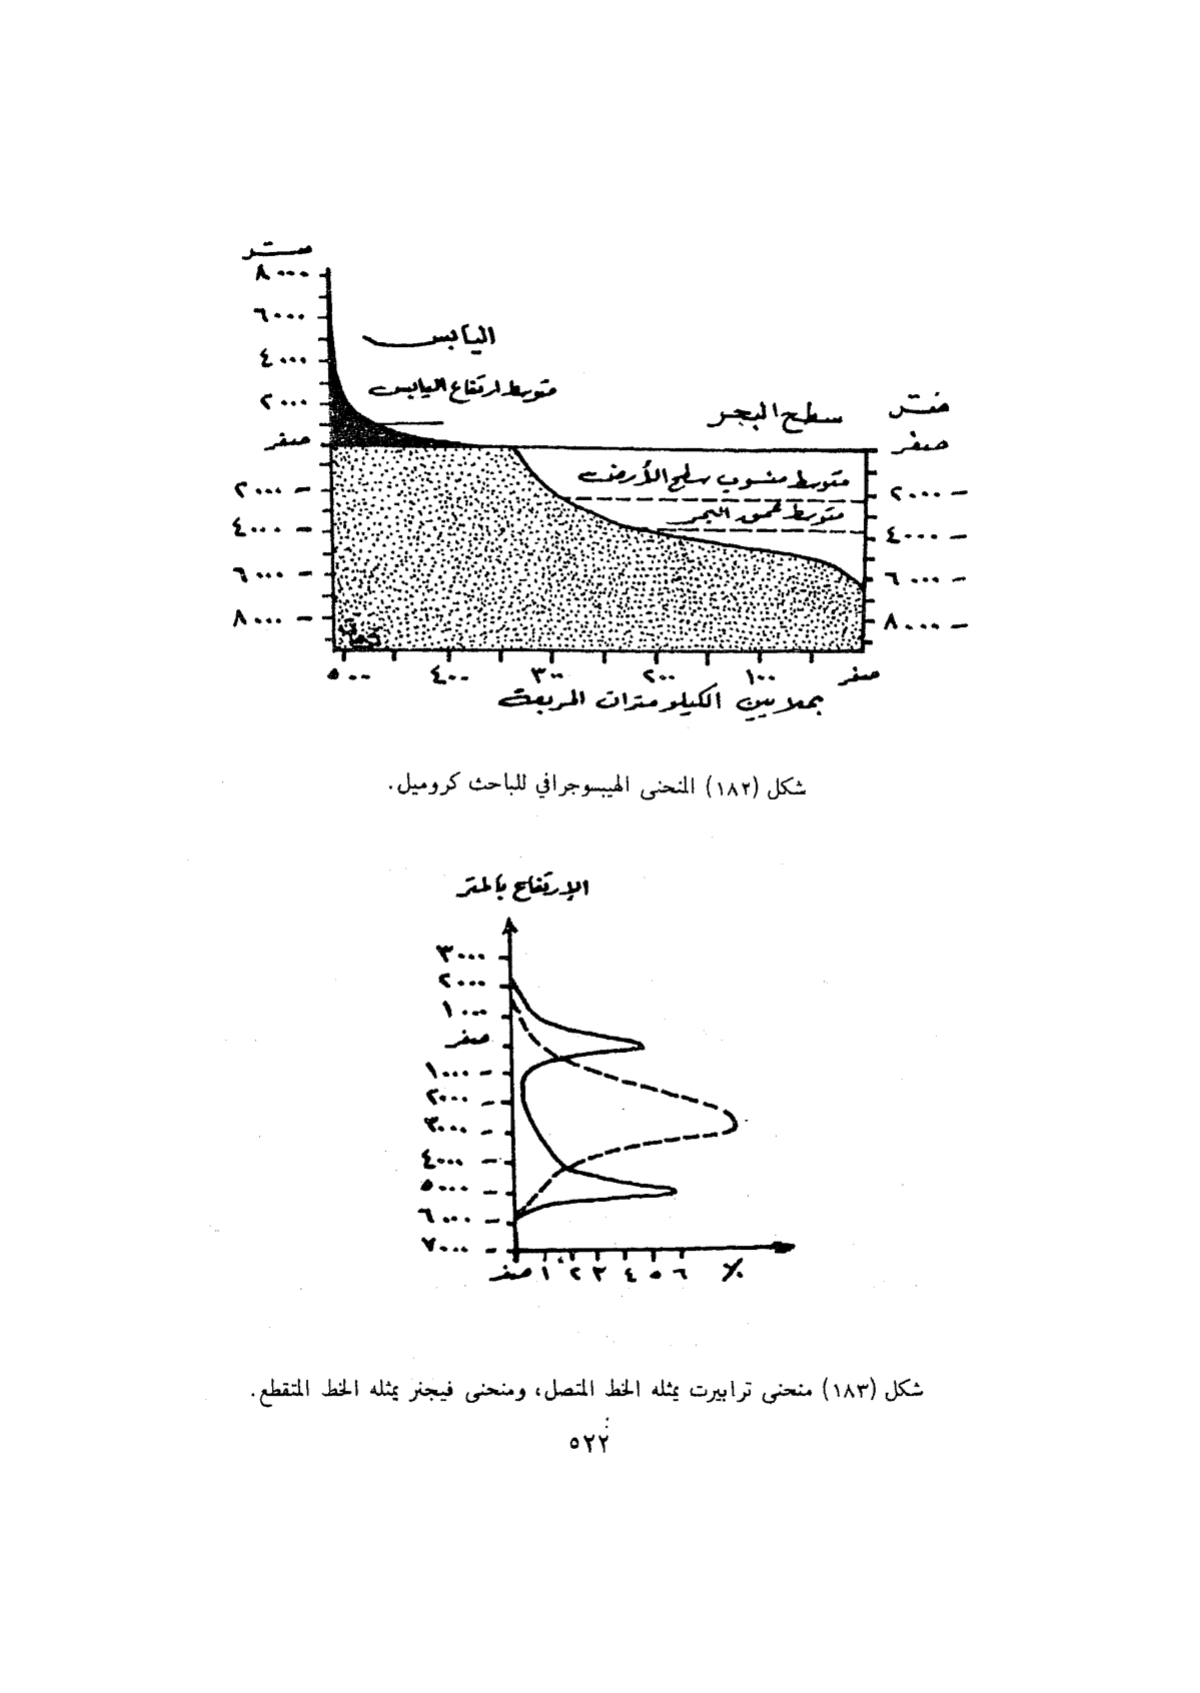 متر
٨٠٠٠
٦٠٠٠
٤٠٠٠
٢٠٠٠
صفر
٢٠٠٠ –
٤٠٠٠ –
٦٠٠٠ –
٨٠٠٠ –
اليابس
متوسط ارتفاع اليابس
سطح البحر
متوسط منسوب سطح الأرض
متوسط عمق البحر
متر
صفر
٢٠٠٠ –
٤٠٠٠ –
٦٠٠٠ –
٨٠٠٠ –
٥٠٠ ٤٠٠ ٣٠٠ ٢٠٠ ١٠٠ صفر
بملايين الكيلومترات المربعة
شكل (١٨٢) المنحنى الهيبسوجرافي للباحث كروميل.
الإرتفاع بالمتر
٣٠٠٠
٢٠٠٠
١٠٠٠
صفر
١٠٠٠ –
٢٠٠٠ –
٣٠٠٠ –
٤٠٠٠ –
٥٠٠٠ –
٦٠٠٠ –
٧٠٠٠ –
صفر ١ ٢ ٣ ٤ ٥ ٦ ٪
شكل (١٨٣) منحنى ترابيرت يمثله الخط المتصل، ومنحنى فيجنر يمثله الخط المتقطع.
٥٢٢